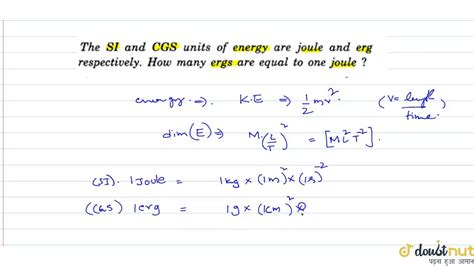 The SI and CGS units of energy are joule and erg
respectively. How many ergs are equal to one joule ?
energy ⇒. K.E ⇒ 1/2 mv². (v= length/time.)
dim(E) ⇒ M.(L/T)² = [ML²T⁻²].
(SI). 1 Joule = 1kg × (1m)² × (1s)⁻²
(CGS) 1 erg = 1g × (1cm)² ×
doubtnut
पढ़ना हुआ आसान